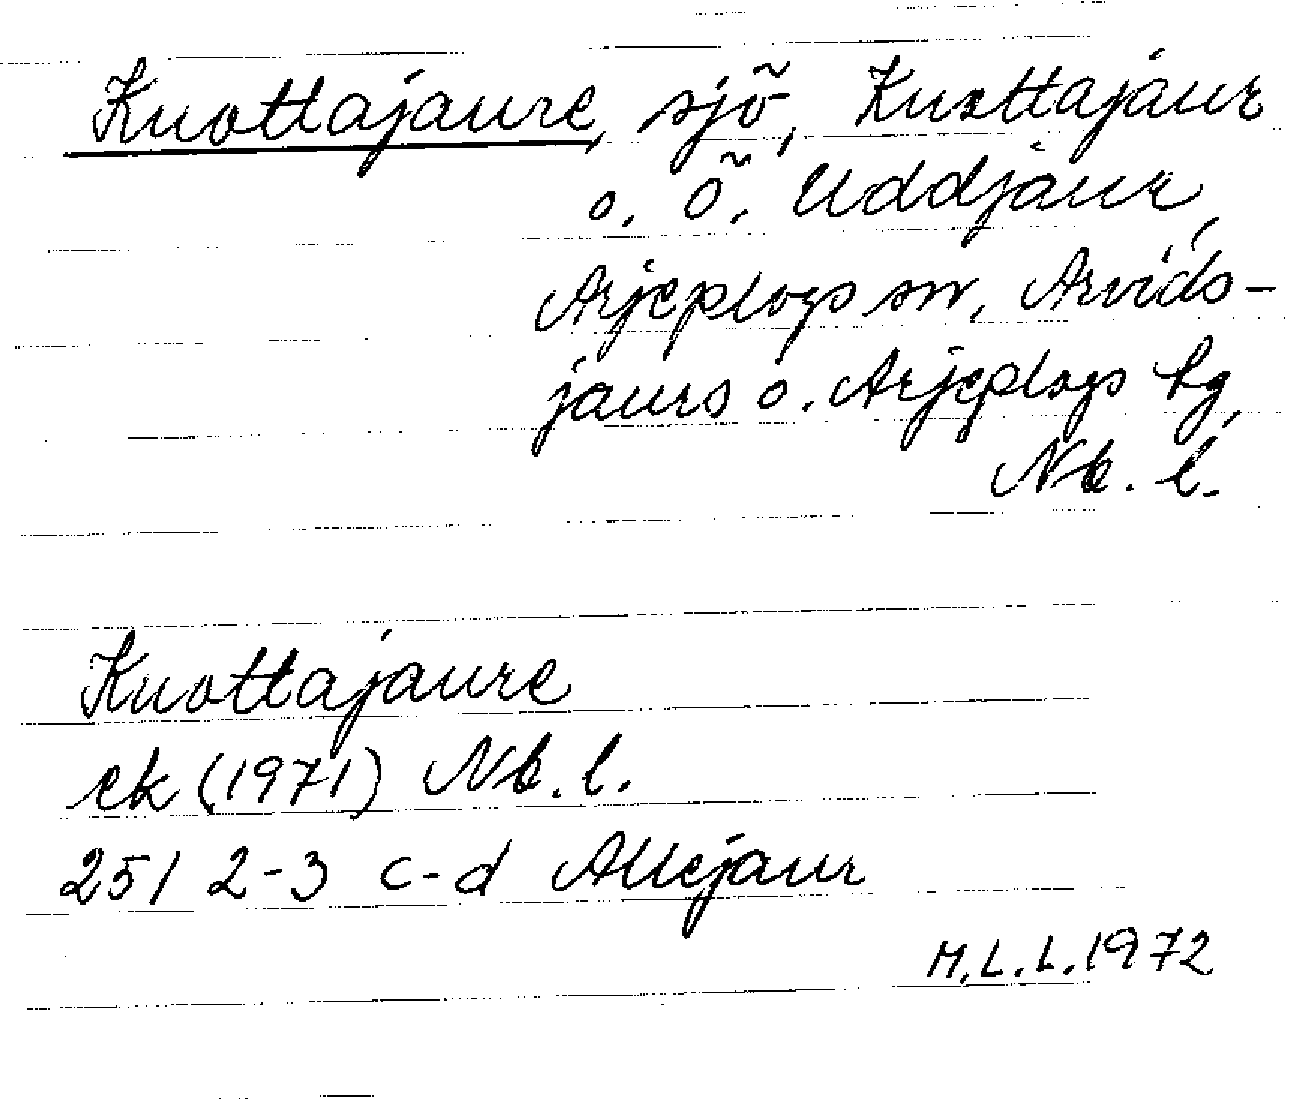 Kuottajaure, sjö, Kuottajaur
o. Ö. Uddjaur,
Arjeplogs sn, Arvids-
jaurs o. Arjeplogs tg,
Nb. l.
Kuottajaure
ek (1971) Nb. l.
25I 2-3 c-d Allejaur
M.L.L. 1972